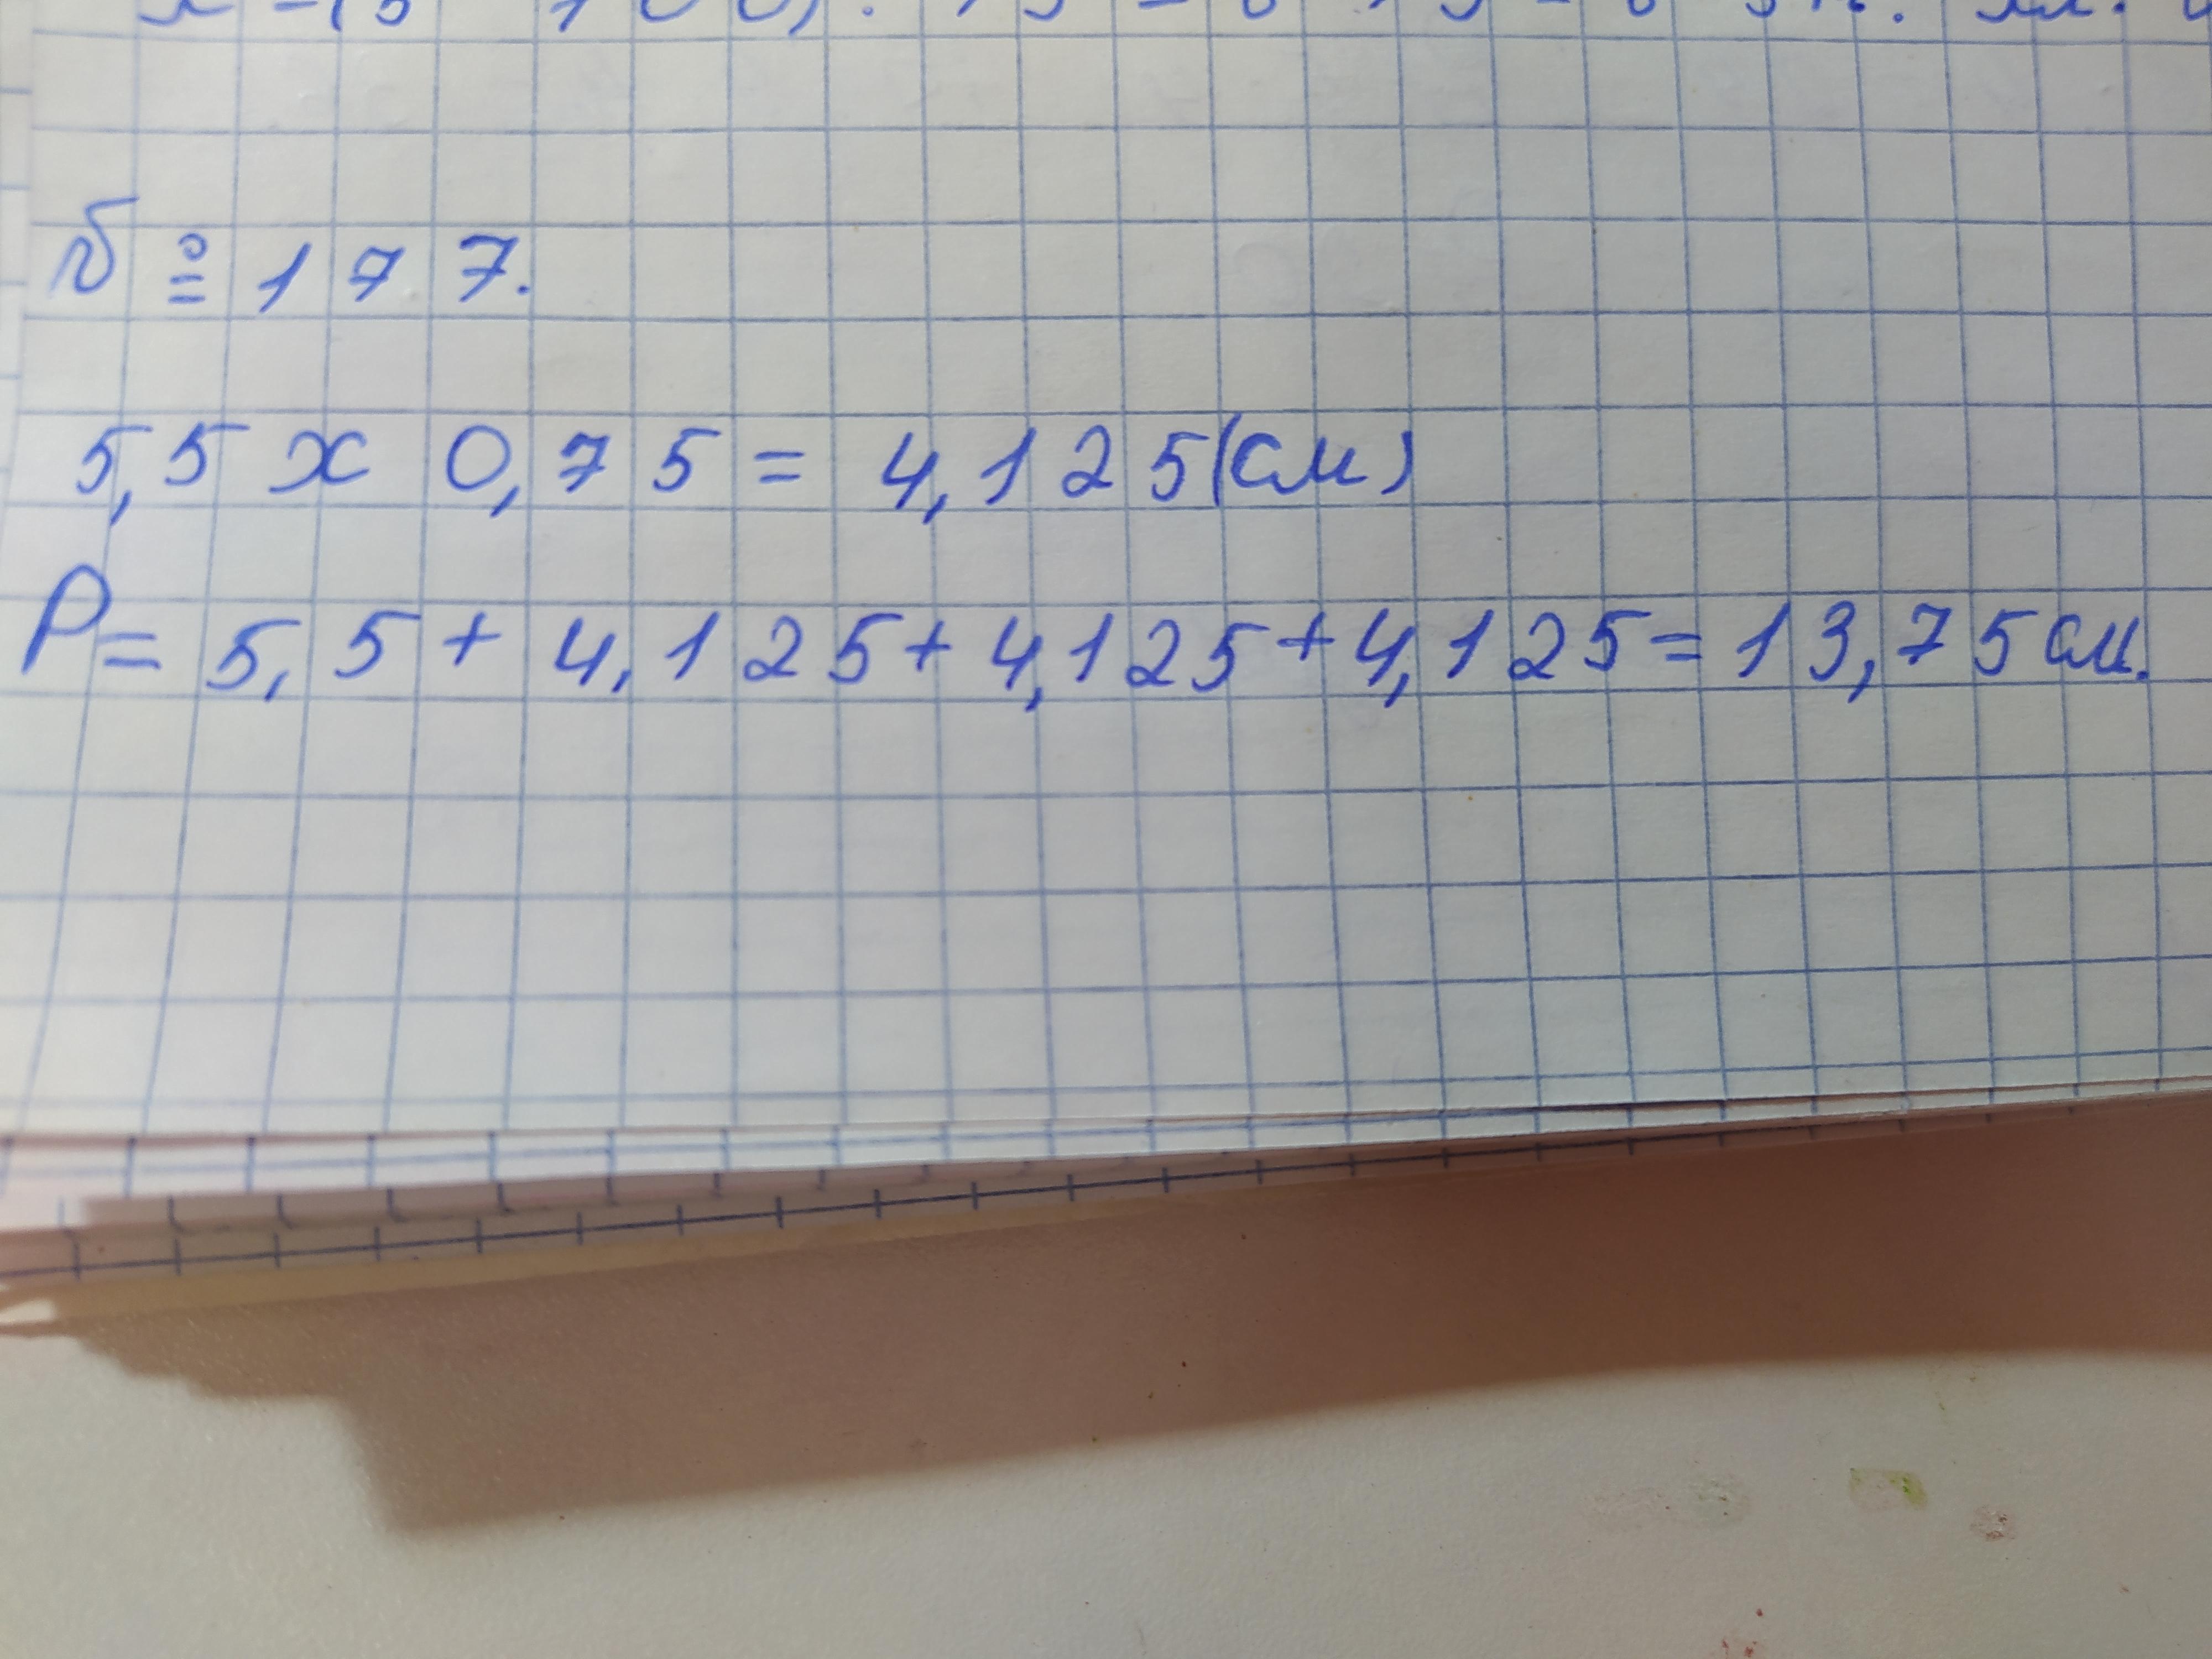 № 177.
5,5 х 0,75 = 4,125(см)
P= 5,5+ 4,125+4,125+4,125=13,75см.